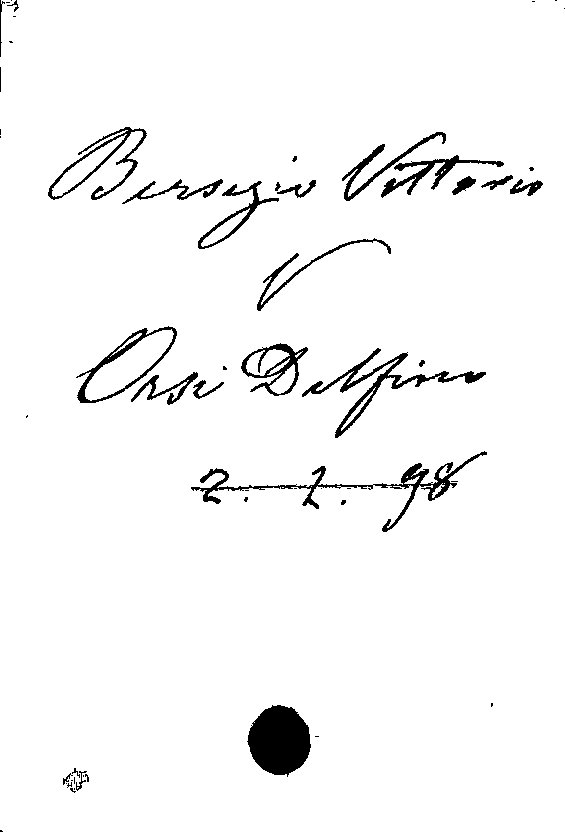 Bersezio Vittorio
V
Orsi Delfino
2. 2. 98